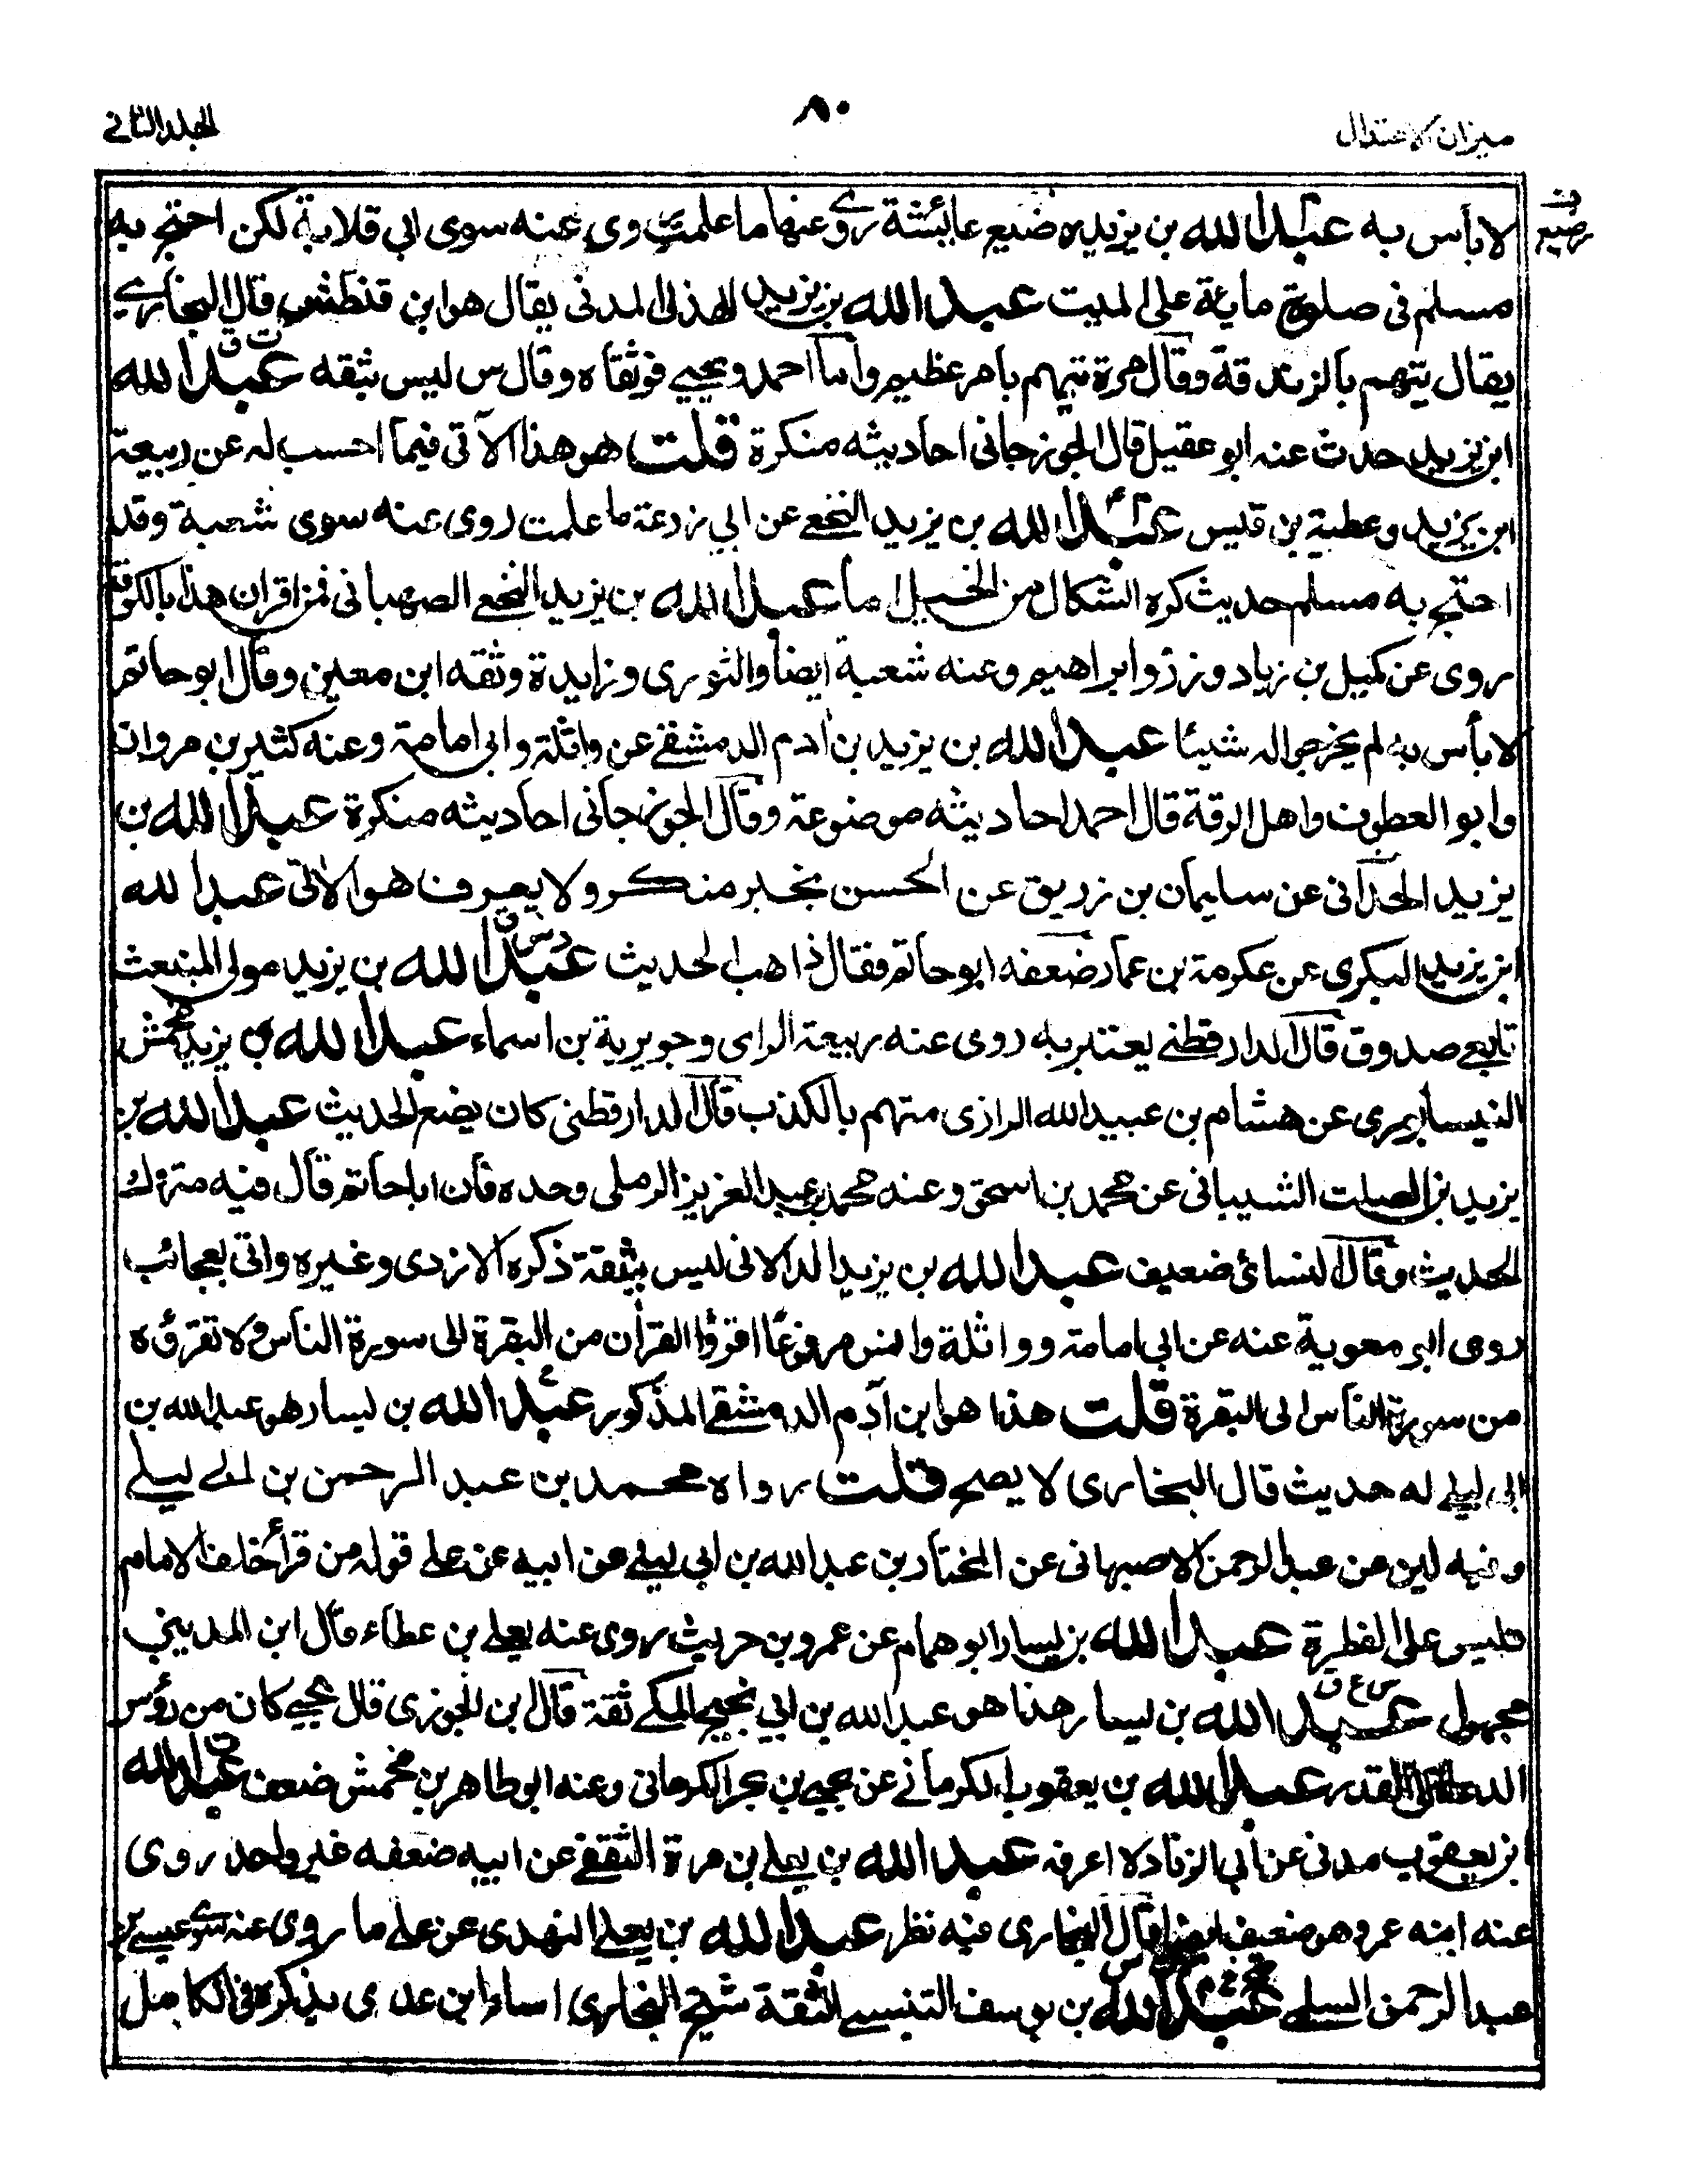 ميزان الاعتدال
٨٠
المجلد الثاني
لا بأس به عبد الله بن يزيد رضيع عائشة روى عنها ما علمت روى عنه سوى ابي قلابة لكن احتج به
مسلم فى صلوة ماية على الميت عبد الله بن يزيد الهذلى المدنى يقال هو ابن قنطش قال البخاري
يقال يتهم بالزندقة وقال مرة يتهم بامر عظيم واما احمد ويحيي فوثقاه وقال س ليس بثقه عبد الله
ابن يزيد حدث عنه ابو عقيل قال الجوزجانى احاديثه منكرة قلت هو هذا الآتى فيما احسب له عن ربيعة
ابن يزيد وعطية بن قيس عبد الله بن يزيد النخعي عن ابي زرعة ما علمت روى عنه سوى شعبة وقد
احتج به مسلم حديث كره الشكال من الخيل اما عبد الله بن يزيد النخعي الصهبانى فمن اقران هذا بالكوفة
روى عن كميل بن زياد وزر وابراهيم وعنه شعبة ايضا والثورى وزايدة وثقه ابن معين وقال ابو حاتم
لا بأس به لم يخرجوا له شيئا عبد الله بن يزيد بن آدم الدمشقي عن واثلة وابى امامة وعنه كثير بن مروان
وابو العطوف واهل الرقة قال احمد احاديثه موضوعة وقال الجوزجانى احاديثه منكرة عبد الله بن
يزيد الحدانى عن سليمان بن زريق عن الحسن بخبر منكر ولا يعرف هو الاتى عبد الله
ابن يزيد البكرى عن عكرمة بن عمار ضعفه ابو حاتم فقال ذاهب الحديث عبد الله بن يزيد مولى المنبعث
تابعي صدوق قال الدارقطني يعتبر به روى عنه ربيعة الراى وجويرية بن اسماء عبد الله بن يزيد محمش
النيسابورى عن هشام بن عبيد الله الرازى متهم بالكذب قال الدارقطنى كان يضع الحديث عبد الله بن
يزيد بن الصلت الشيبانى عن محمد بن اسحق وعنه محمد بن عبد العزيز الرملى وحده فان ابا حاتم قال فيه متروك
الحديث وقال النسائي ضعيف عبد الله بن يزيد الدالانى ليس بثقة ذكره الازدى وغيره واتى بعجائب
روى ابو معوية عنه عن ابى امامة وواثلة وانس مرفوعًا اقرؤا القرأن من البقرة الى سورة الناس ولا تقرؤه
من سورة الناس الى البقرة قلت هذا هو ابن آدم الدمشقي المذكور عبد الله بن يسار هو عبد الله بن
ابى ليلي له حديث قال البخارى لا يصح قلت رواه محمد بن عبد الرحمن بن ابي ليلي
وفيه لين عن عبد الرحمن الاصبهانى عن المختار بن عبد الله بن ابى ليلي عن ابيه عن علي قوله من قرأ خلف الامام
فليس على الفطرة عبد الله بن يسار ابو همام عن عمرو بن حريث روى عنه يعلي بن عطاء قال ابن المديني
مجهول عبد الله بن يسار هذا هو عبد الله بن ابي نجيح المكي ثقة قال بن الجوزى قال يحيي كان من رؤس
الدعاة الى القدر عبد الله بن يعقوب الكرماني عن يحيي بن بحر الكرمانى وعنه ابو طاهر بن محمش ضعف عبد الله
ابن يعقوب مدنى عن ابى الزناد لا اعرفه عبد الله بن يعلي بن مرة الثقفي عن ابيه ضعفه غير واحد روى
عنه ابنه عمر وهو ضعيف ايضا قال البخارى فيه نظر عبد الله بن يعلي النهدى عن علي ما روى عنه سوى عيسي بن
عبد الرحمن السلمي عبد الله بن يوسف التنيسي الثقة شيخ البخارى اساء ابن عدى بذكره فى الكامل